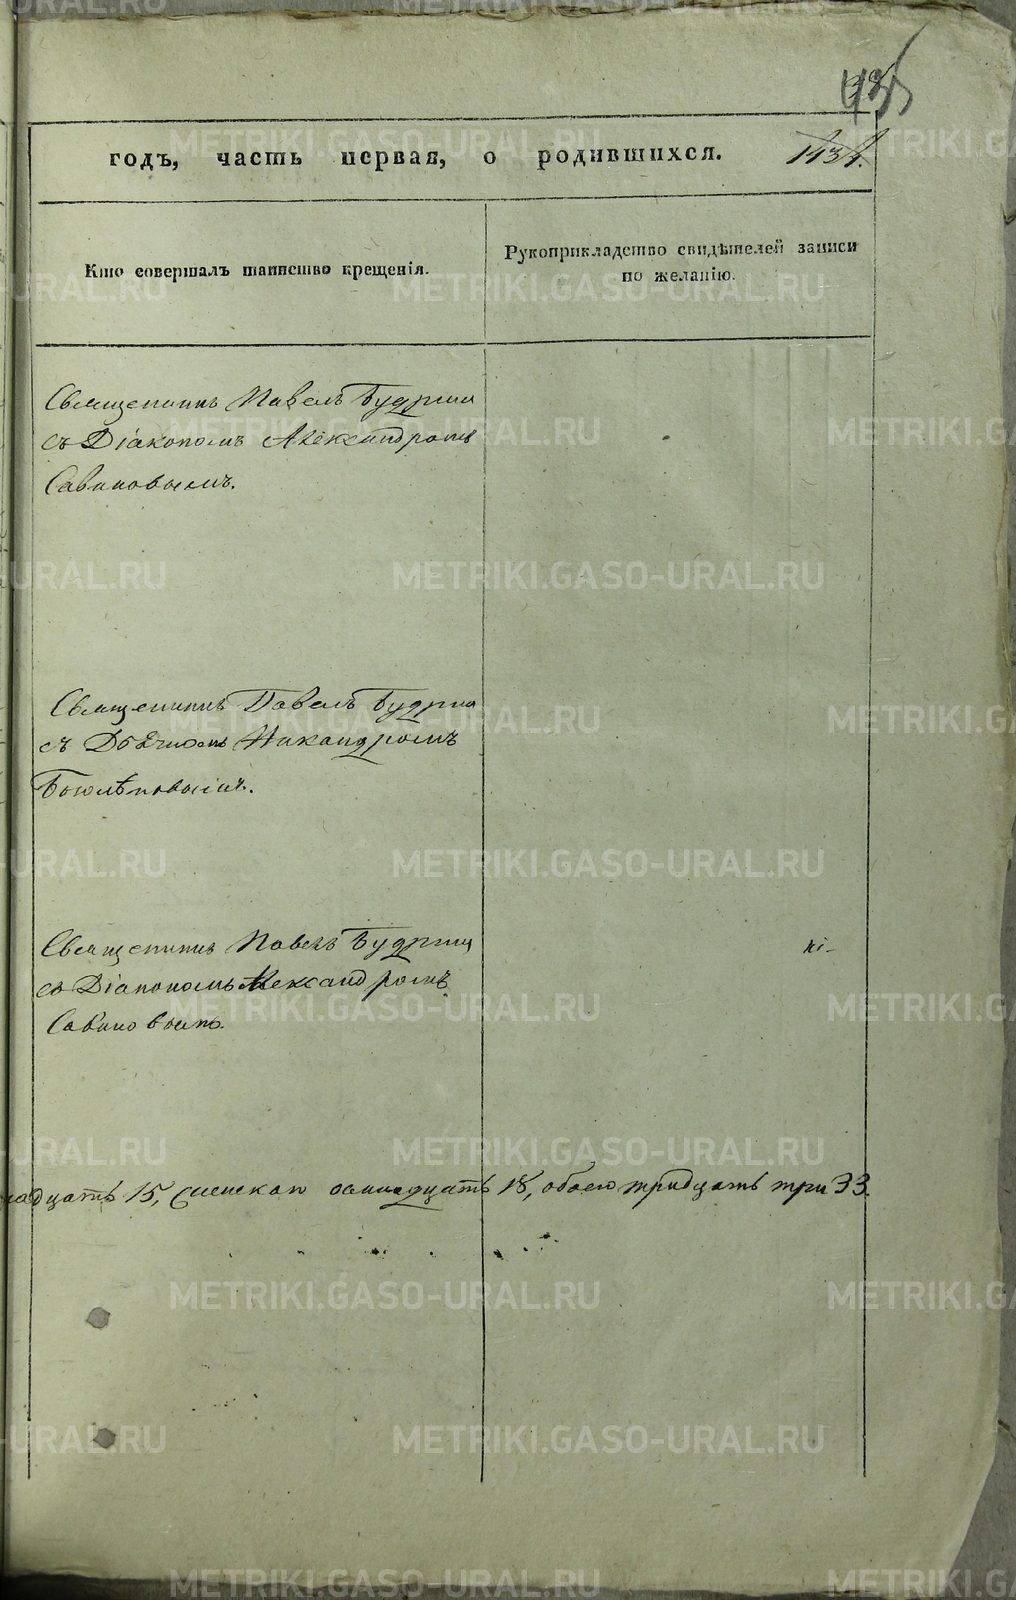 годъ, часть первая, о родившихся.
1434.
Кто совершалъ таинство крещенія.
Рукоприкладство свидѣтелей записи
по желанію.
Священникъ Павелъ Будрин
съ Діакономъ Александромъ
Савиновымъ.
Священникъ Павелъ Будрин
съ Дьячкомъ Никандромъ
Боголѣповымъ.
Священникъ Павелъ Будрин
съ Діакономъ Александромъ
Савиновымъ.
надцать 15, женскаго осмнадцать 18, обоего тридцать три 33.
METRIKI.GASO-URAL.RU